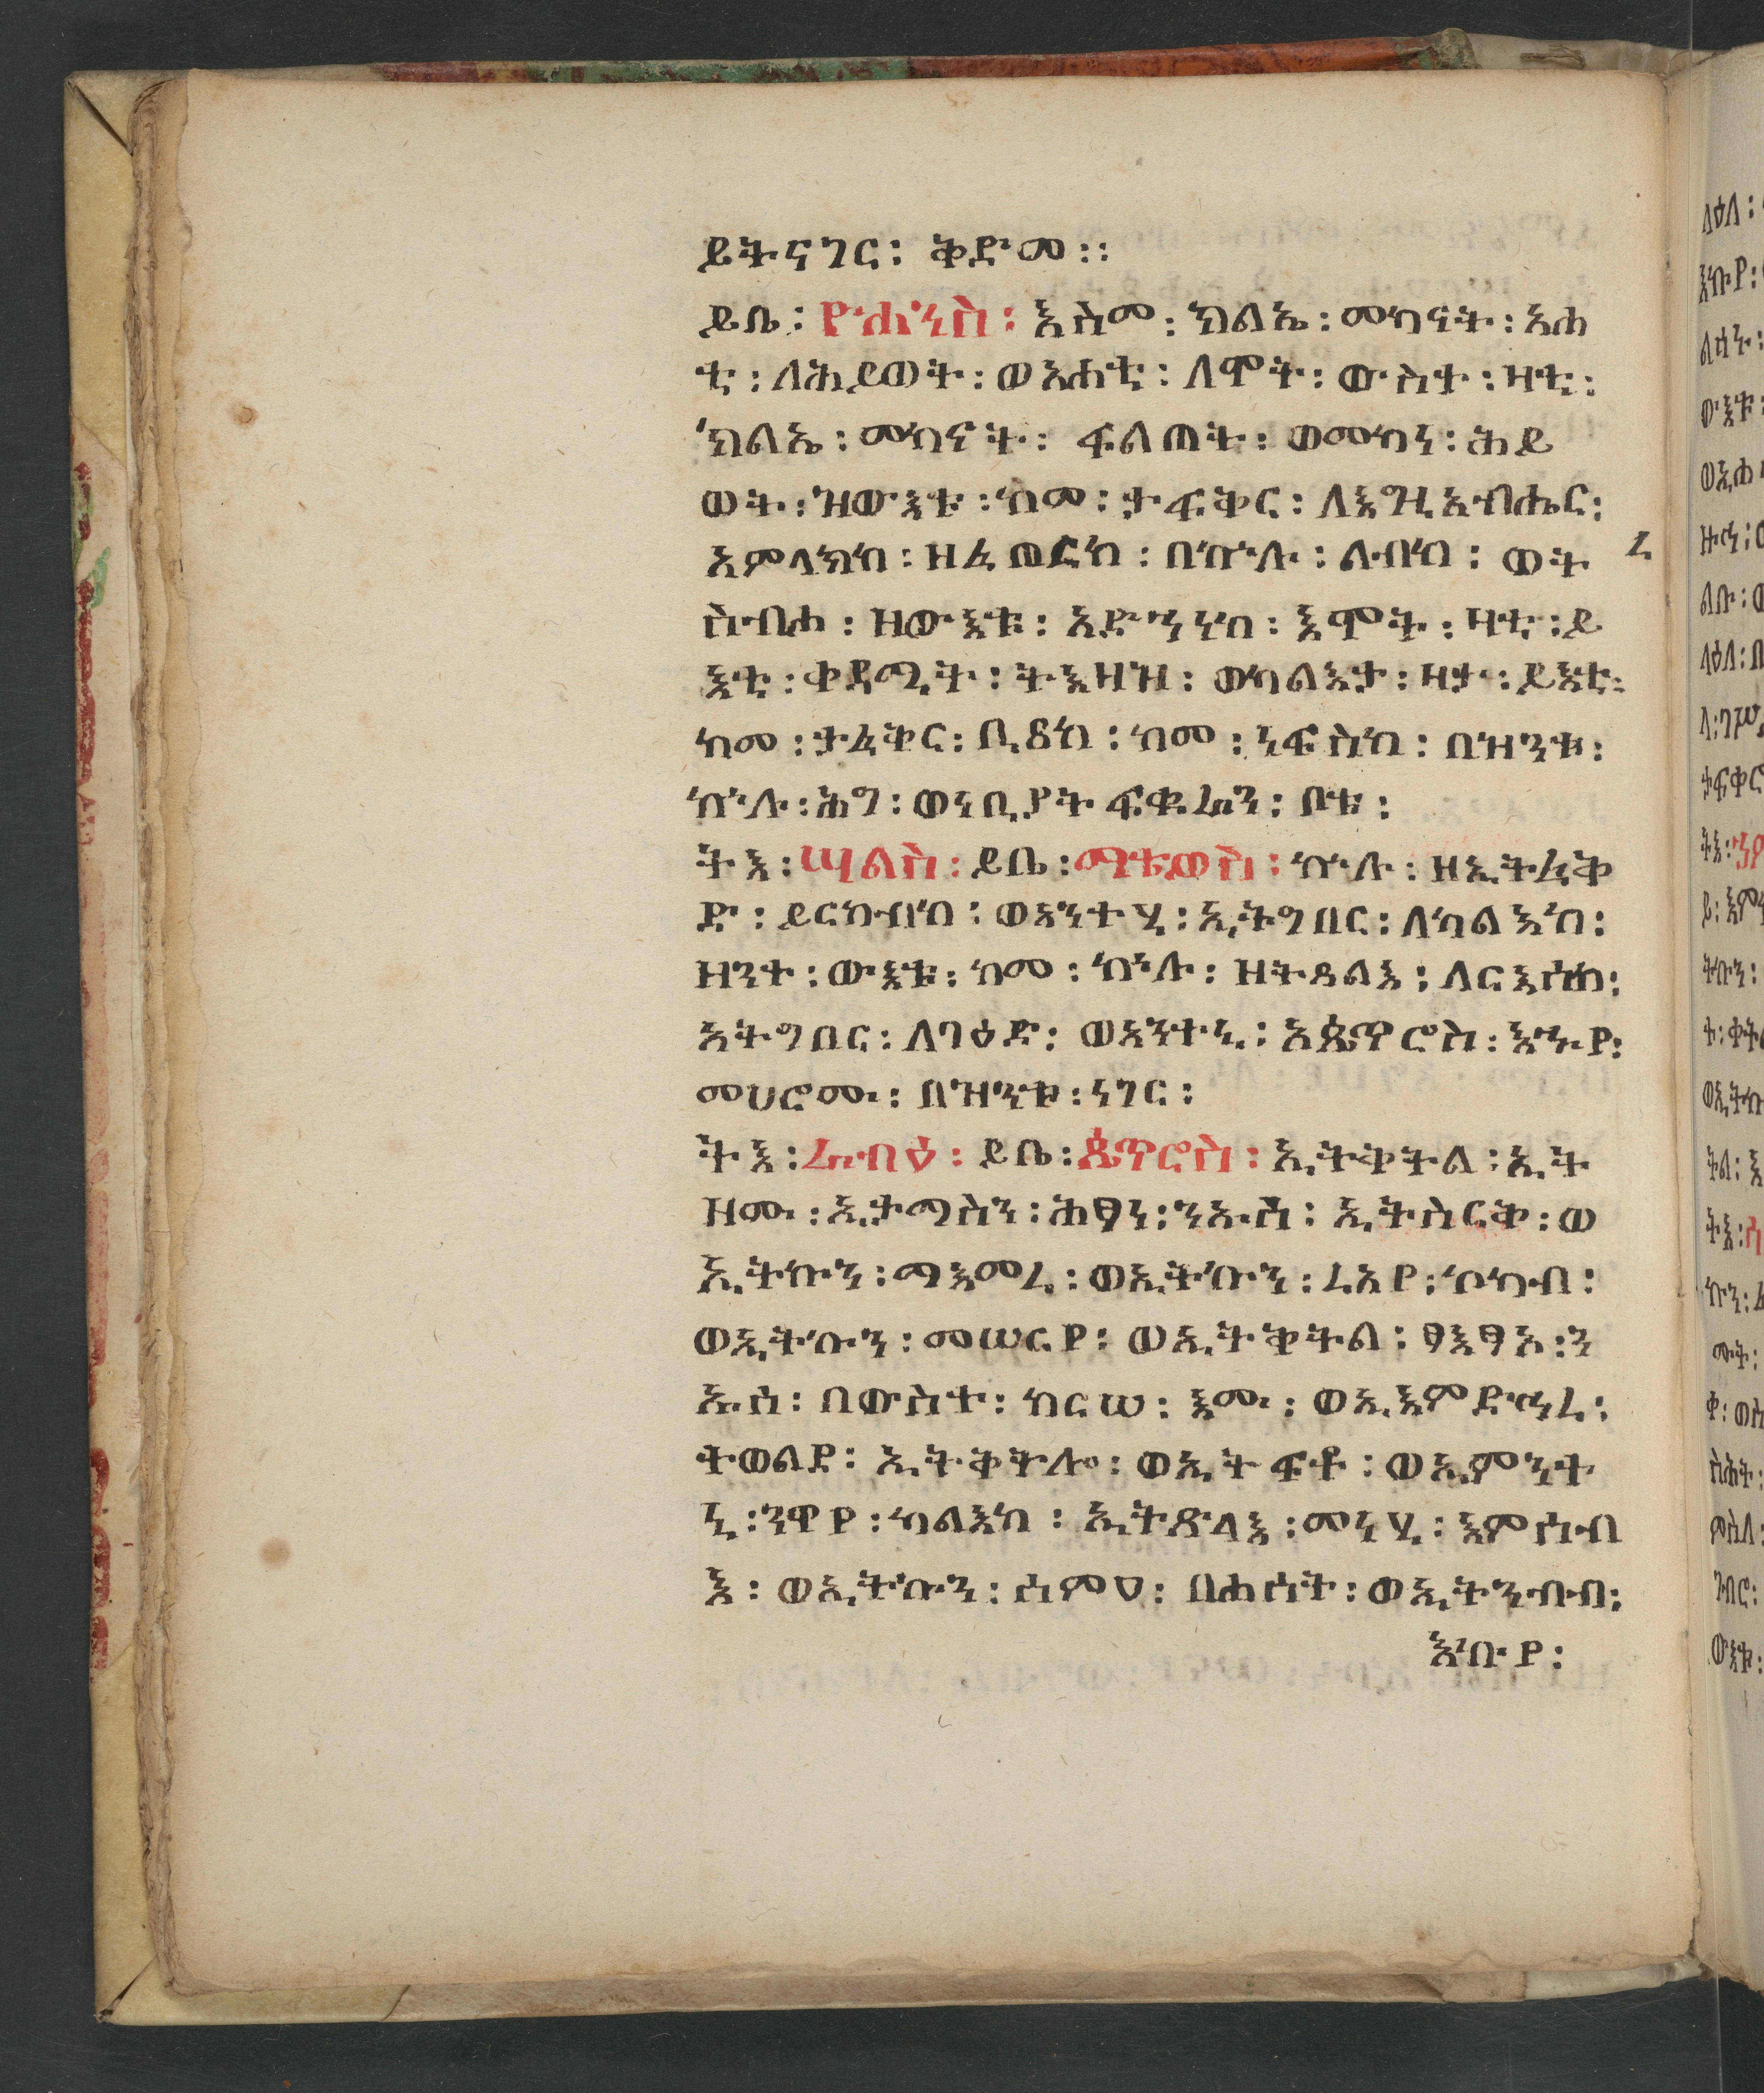 ይትናገር፡ ቅድመ፡፡
ይቤ፡ ዮሐንስ፡ እስመ፡ ክልኤ፡ መካናት፡ አሐ
ቲ፡ ለሕይወት፡ ወአሐቲ፡ ለሞት፡ ውስተ፡ ዛቲ፡
ክልኤ፡ መካኖት፡ ፍልጠት፡ ወመካነ፡ ሕይ
ወት፡ ዝውእቱ፡ ከመ፡ ታፍቅር፡ ለእግዚአብሔር፡
አምላክከ፡ ዘፈጠረከ፡ በኵሉ፡ ልብከ፡ ወት
ሴብሖ፡ ዘውእቱ፡ አድኀነከ፡ እሞት፡ ዛቲ፡ ይ
እቲ፡ ቀዳሚት፡ ትእዛዝ፡ ወካልእታ፡ ዛታ፡ ይእቲ፡
ከመ፡ ታፈቅር፡ ቢፀከ፡ ከመ፡ ነፍስከ፡ በዝንቱ፡
ኵሉ፡ ሕግ፡ ወነቢያት ፍቁራን፡ ቦቱ፡
ትእ፡ ሣልስ፡ ይቤ፡ ማቴዎስ፡ ኵሉ፡ ዘኢትፈቅ
ድ፡ ይርከብከ፡ ወአንተሂ፡ ኢትግበር፡ ለካልእከ፡
ዝንተ፡ ውእቱ፡ ከመ፡ ኵሉ፡ ዘትጸልእ፡ ለርእስከ፡
አትግበር፡ ለባዕድ፡ ወአንተኒ፡ አጴጥሮስ፡ እኁየ፡
መሀሮሙ፡ በዝንቱ፡ ነገር፡
ትእ፡ ራብዕ፡ ይቤ፡ ጴጥሮስ፡ ኢትቅትል፡ ኢት
ዘሙ፡ ኢታማስን፡ ሕፃነ፡ ንኡሰ፡ ኢትስርቅ፡ ወ
ኢትኩን፡ ማእመረ፡ ወኢትኩን፡ ረአየ፡ ኮከብ፡
ወኢትኩን፡ መሠርየ፡ ወኢትቅትል፡ ፃእፃአ፡ ን
ኡሰ፡ በውስተ፡ ከርሠ፡ እሙ፡ ወኢእምድኅረ፡
ተወልደ፡ ኢትቅትሎ፡ ወኢትፍቶ፡ ወኢምንተ
ኒ፡ ንዋየ፡ ካልእከ፡ ኢትጽላእ፡ መነሂ፡ እምሰብ
እ፡ ወኢትኩን፡ ሰምዐ፡ በሐሰት፡ ወኢትንብብ፡
እኩየ፡